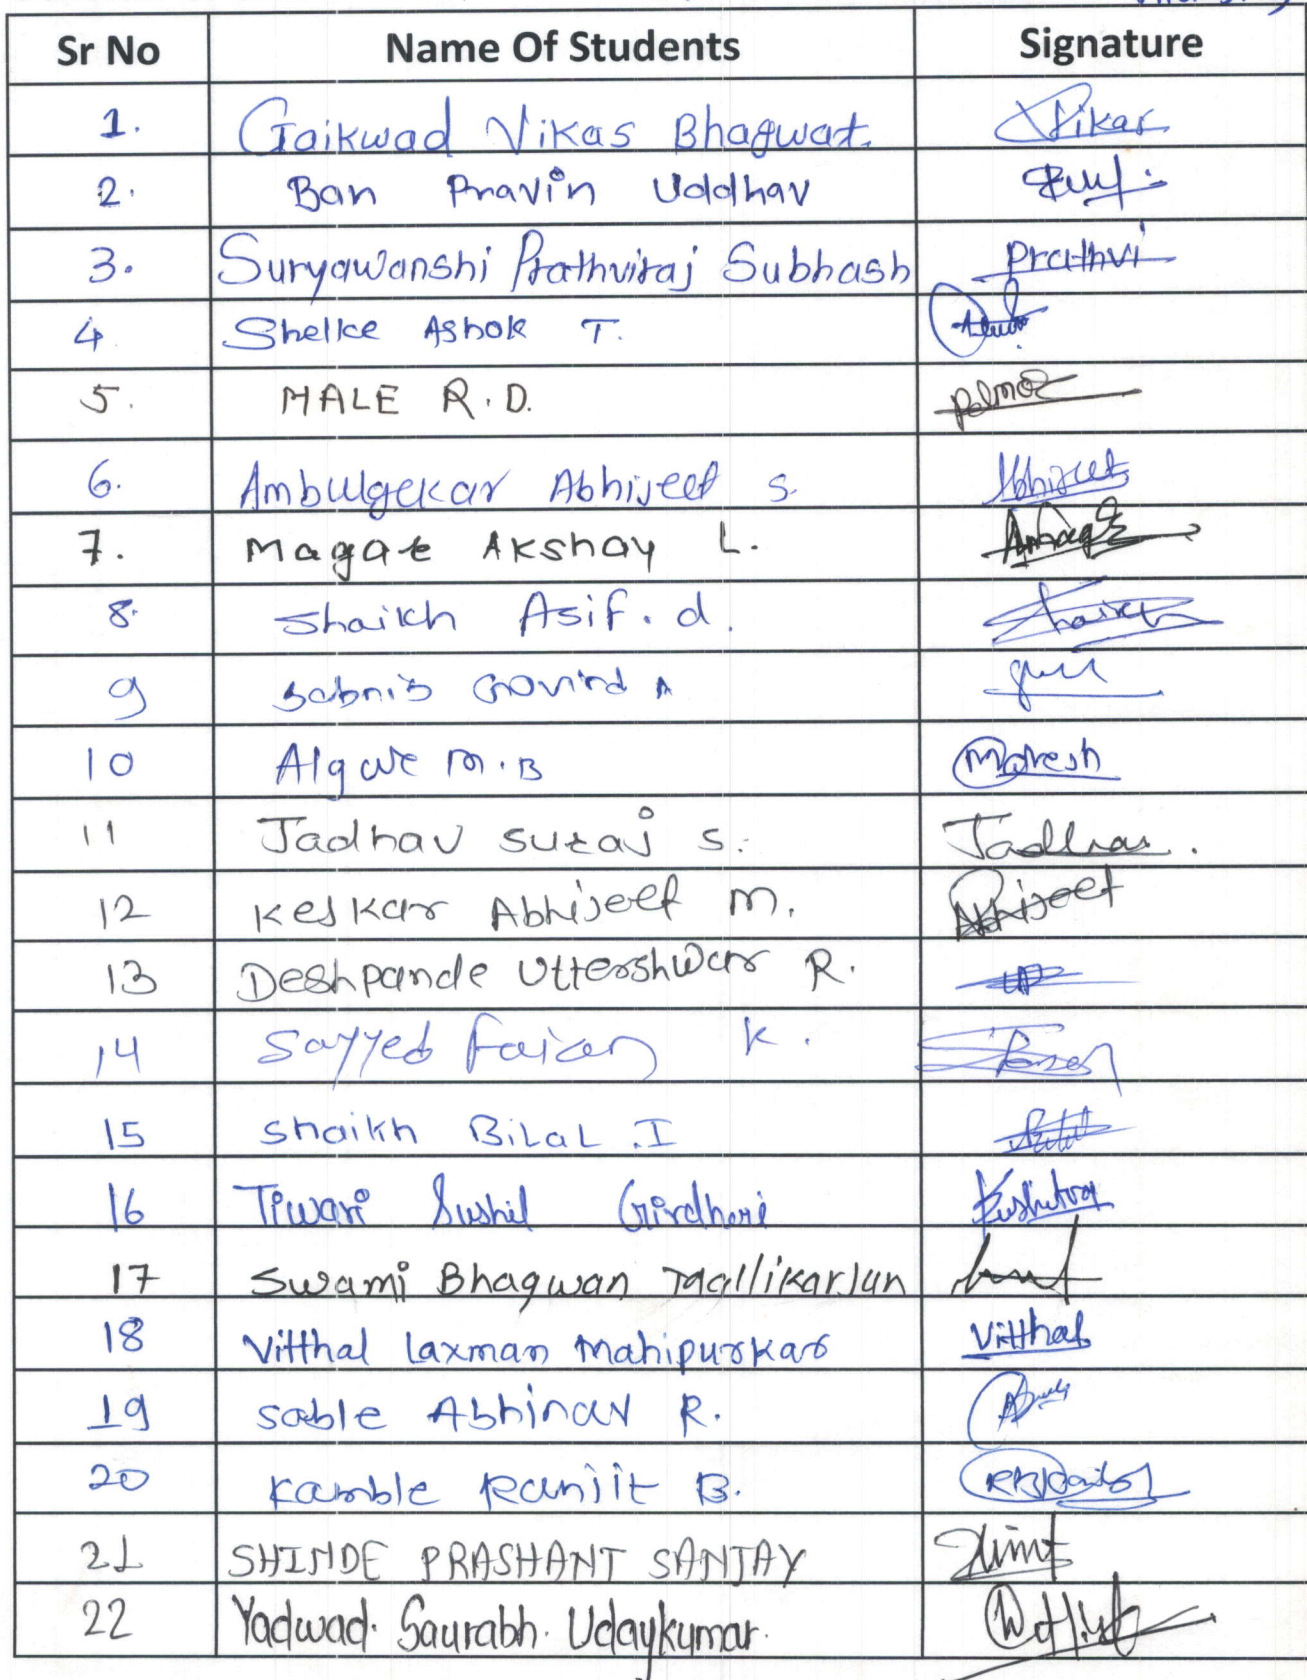 Sr No Name Of Students Signature
1. Gaikwad Vikas Bhagwat. Vikas
2. Ban Pravin Uddhav
3. Suryawanshi Prathviraj Subhash Prathvi
4 Shelke Ashok T.
5. MALE R.D.
6. Ambulgekar Abhijeet S. Abhijeet
7. Magar Akshay L.
8. Shaikh Asif. d. Shaikh
9 Sabnis Govind A
10 Algave M.B Mahesh
11 Jadhav Suraj S. Jadhav.
12 Keskar Abhijeet M. Abhijeet
13 Deshpande Uttershwar R.
14 Sayyed Faizan K.
15 Shaikh BiLaL .I
16 Tiwari Sushil Girdhari
17 Swami Bhagwan Mallikarjun
18 Vitthal Laxman Mahipurkar Vitthal
19 Sable Abhinav R.
20 Kamble Ranjit B.
21 SHINDE PRASHANT SANJAY
22 Yadwad. Saurabh. Udaykumar.